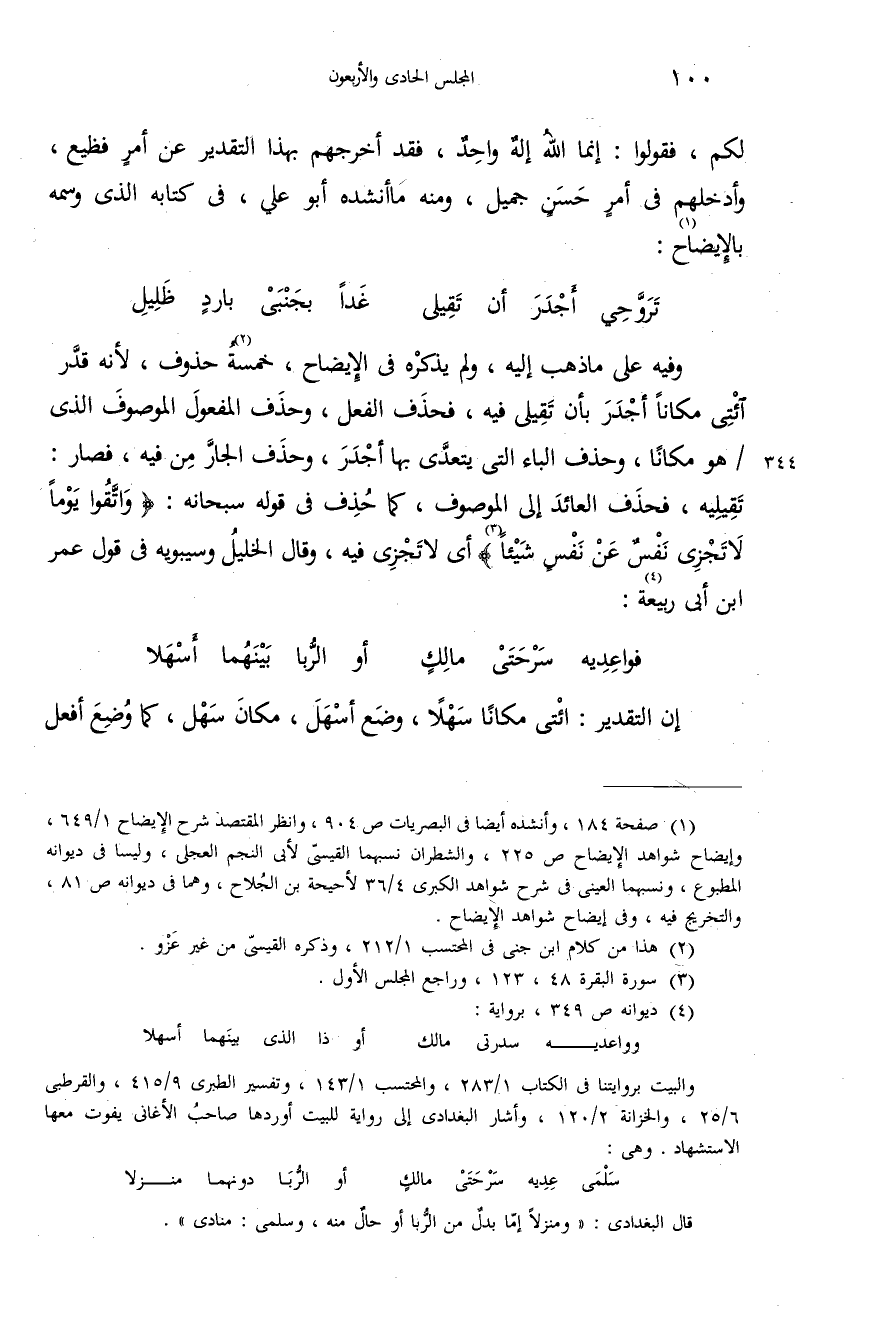 ١٠٠ المجلس الحادى والأربعون
لكم ، فقولوا : إنما اللهُ إلهٌ واحِدٌ ، فقد أخرجهم بهذا التقدير عن أمرٍ فظيع ،
وأدخلهم فى أمرٍ حَسَنٍ جميل ، ومنه ماأنشده أبو علي ، فى كتابه الذى وسمه
بالإِيضاح(١) :
تَرَوَّحِي أَجْدَرَ أن تَقِيلى غَداً بجَنْبَىْ باردٍ ظَلِيلِ
وفيه على ماذهب إليه ، ولم يذكرْه فى الإِيضاح ، خمسةُ(٢) حذوف ، لأنه قدَّر
آئْتِى مكاناً أجْدَرَ بأن تَقِيلى فيه ، فحذَف الفعل ، وحذَف المفعولَ الموصوفَ الذى
٣٤٤ / هو مكانًا ، وحذف الباء التى يتعدَّى بها أجْدَرَ ، وحذَف الجارَّ مِن فيه ، فصار :
تَقِيلِيه ، فحذَف العائدَ إلى الموصوف ، كما حُذِف فى قوله سبحانه : ﴿ وَاتَّقُوا يَوْماً
لَاتَجْزِى نَفْسٌ عَنْ نَفْسٍ شَيْئاً ﴾(٣) أى لاتَجْزِى فيه ، وقال الخليلُ وسيبويه فى قول عمر
ابن أبى ربيعة(٤) :
فواعِدِيه سَرْحَتَىْ مالِكٍ أو الرُّبا بَيْنَهُما أَسْهَلا
إن التقدير : ائْتى مكانًا سَهْلًا ، وضَع أسْهَلَ ، مكانَ سَهْل ، كما وُضِعَ أفعل
(١) صفحة ١٨٤ ، وأنشده أيضا فى البصريات ص ٩٠٤ ، وانظر المقتصد شرح الإيضاح ٦٤٩/١ ،
وإيضاح شواهد الإيضاح ص ٢٢٥ ، والشطران نسبهما القيسىّ لأبى النجم العجلى ، وليسا فى ديوانه
المطبوع ، ونسبهما العينى فى شرح شواهد الكبرى ٣٦/٤ لأحيحة بن الجُلاح ، وهما فى ديوانه ص ٨١ ،
والتخريج فيه ، وفى إيضاح شواهد الإيضاح .
(٢) هذا من كلام ابن جنى فى المحتسب ٢١٢/١ ، وذكره القيسىّ من غير عَزْو .
(٣) سورة البقرة ٤٨ ، ١٢٣ ، وراجع المجلس الأول .
(٤) ديوانه ص ٣٤٩ ، برواية :
وواعديـــــه سدرتى مالك أو ذا الذى بينَهما أسهلا
والبيت بروايتنا فى الكتاب ٢٨٣/١ ، والمحتسب ١٤٣/١ ، وتفسير الطبرى ٤١٥/٩ ، والقرطبى
٢٥/٦ ، والخزانة ١٢٠/٢ ، وأشار البغدادى إلى رواية للبيت أوردها صاحبُ الأغانى يفوت معها
الاستشهاد . وهى :
سَلْمَى عِدِيه سَرْحَتَىْ مالكٍ أو الرُّبَا دونهما منـــزلا
قال البغدادى : « ومنزلاً إمّا بدلٌ من الرُّبا أو حالٌ منه ، وسلمى : منادى » .